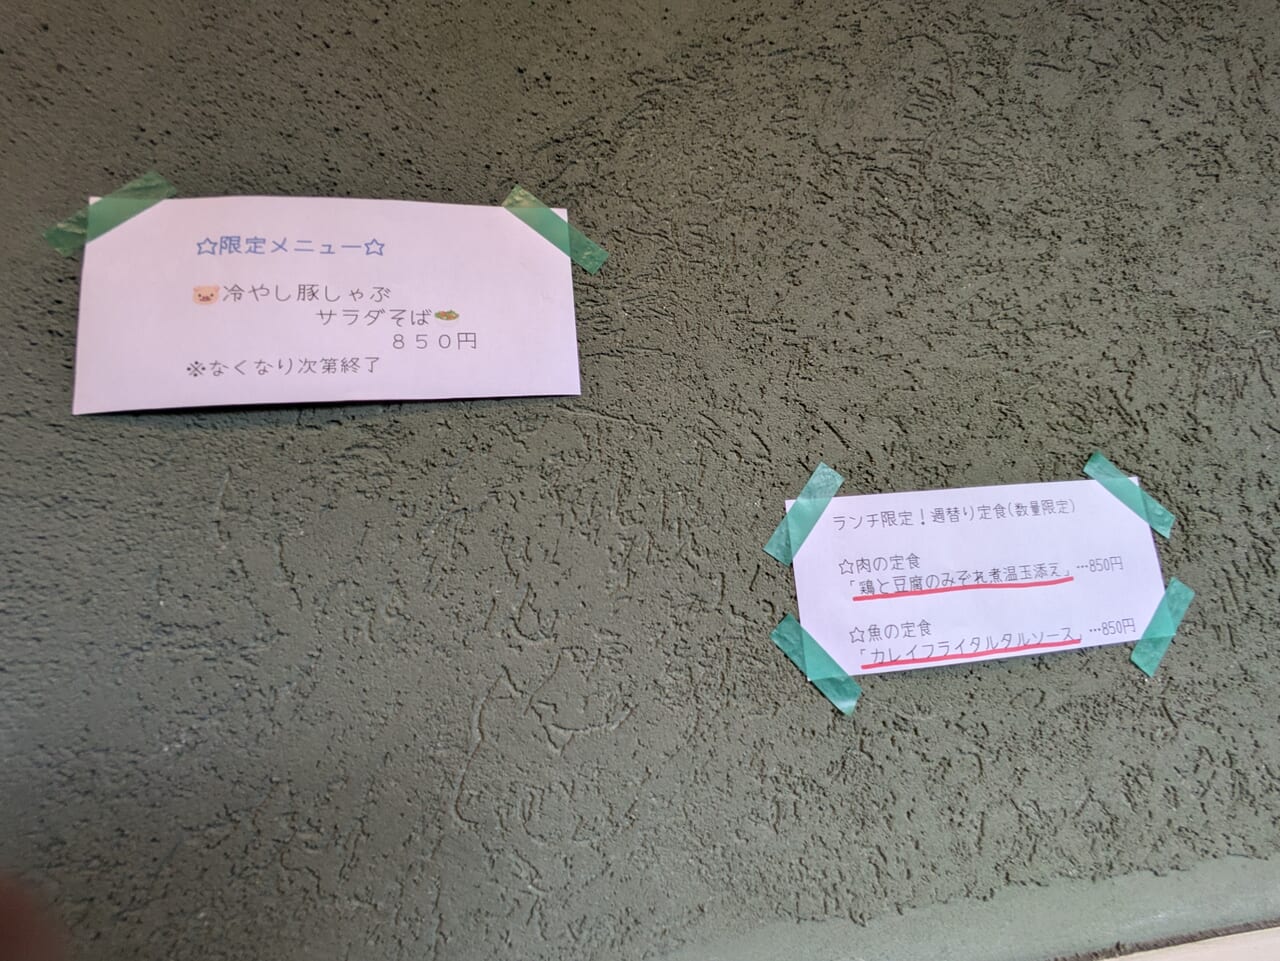 ☆限定メニュー☆
冷やし豚しゃぶ
サラダそば
８５０円
※なくなり次第終了
ランチ限定！週替り定食(数量限定)
☆肉の定食
「鶏と豆腐のみぞれ煮温玉添え」…850円
☆魚の定食
「カレイフライタルタルソース」…850円